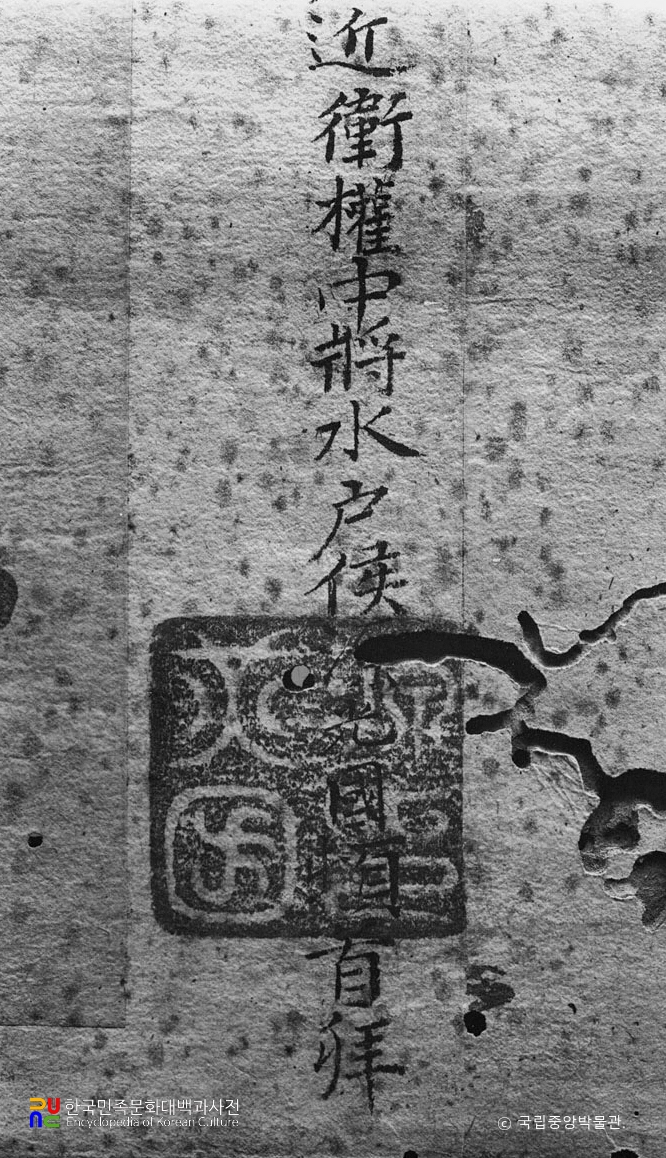 近衛權中將水户侯 光國頓百拜
한국민족문화대백과사전
Encyclopedia of Korean Culture
© 국립중앙박물관.